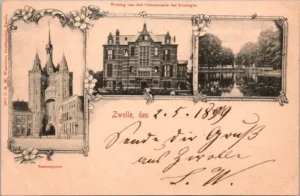 Woning van den Commissaris der Koningin.
Sassenpoorte
Zwolle, den 2.5.1899
Sende die Gruß
aus Zwolle